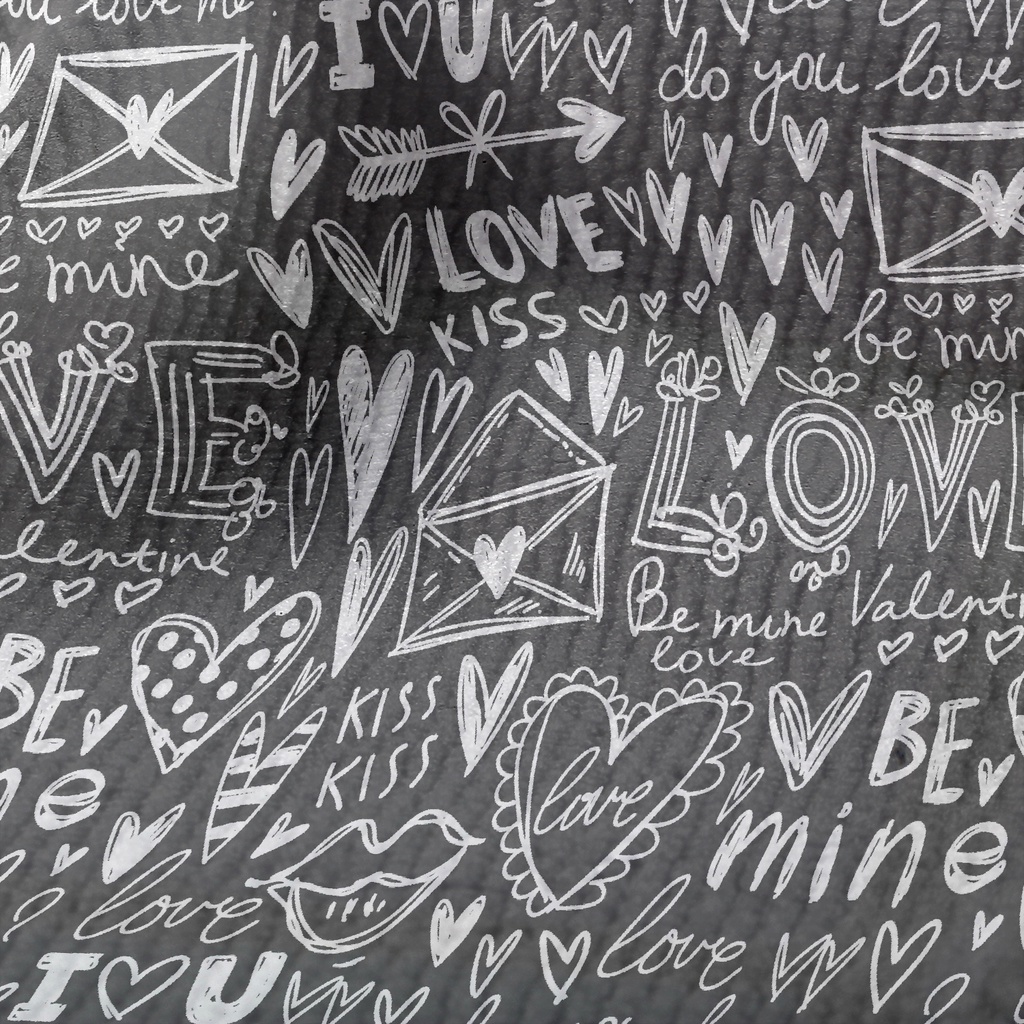 you love me
I U
do you love
LOVE
KISS
e mine
be min
VE
LOV
alentine
Be mine Valenti
love
BE
KISS
KISS
love
BE
ne
mine
love
love
I U